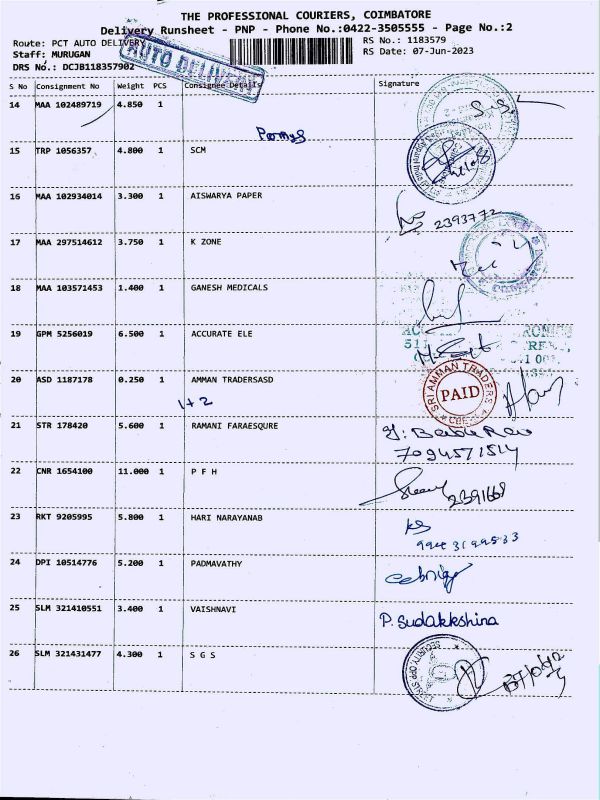 THE PROFESSIONAL COURIERS, COIMBATORE
Delivery Runsheet - PNP - Phone No.:0422-3505555 - Page No.:2
Route: PCT AUTO DELIVERY
RS No.: 1183579
Staff: MURUGAN
RS Date: 07-Jun-2023
DRS No.: DCJB118357902
AUTO DELIVERY
S No Consignment No Weight PCS Consignee Details Signature
14 MAA 102489719 4.850 1
15 TRP 1056357 4.800 1 SCM
16 MAA 102934014 3.300 1 AISWARYA PAPER
2393772
17 MAA 297514612 3.750 1 K ZONE
18 MAA 103571453 1.400 1 GANESH MEDICALS
19 GPM 5256019 6.500 1 ACCURATE ELE
20 ASD 1187178 0.250 1 AMMAN TRADERSASD
1+2
SRI AMMAN TRADERS
PAID
CBE
21 STR 178420 5.600 1 RAMANI FARAESQURE
7094571514
22 CNR 1654100 11.000 1 P F H
2391668
23 RKT 9205995 5.800 1 HARI NARAYANAB
24 DPI 10514776 5.200 1 PADMAVATHY
25 SLM 321410551 3.400 1 VAISHNAVI
P. Sudakkshina
26 SLM 321431477 4.300 1 S G S